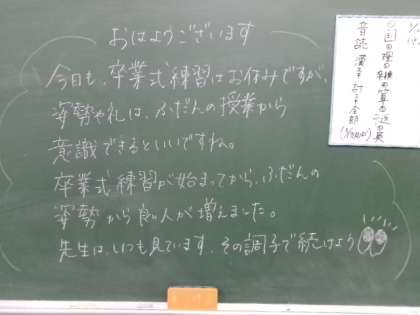 おはようございます
今日も、卒業式練習はお休みですが、
姿勢や礼は、ふだんの授業から
意識できるといいですね。
卒業式練習が始まってから、ふだんの
姿勢から良い人が増えました。
先生は、いつも見ています。その調子で続けよう